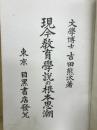 文學博士 吉田熊次著
現今教育學說の根本思潮
東京 目黑書店發兌